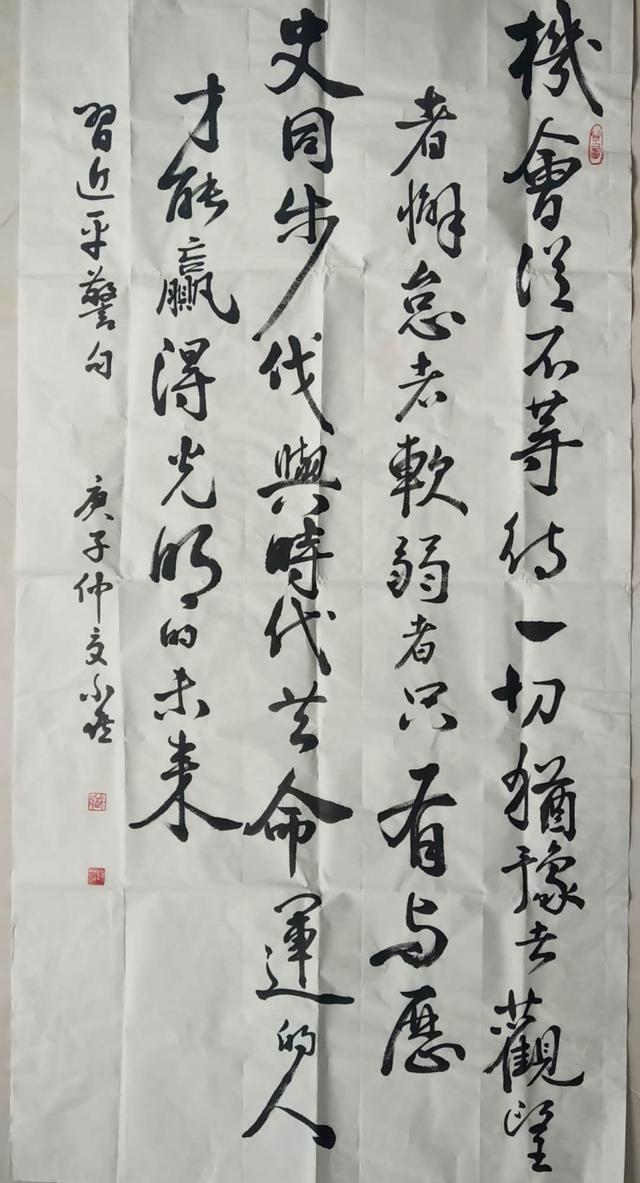 機會從不等待一切猶豫者觀望
者懈怠者軟弱者只有与歷
史同步伐與時代共命運的人
才能贏得光明的未来
習近平警句
庚子仲夏小